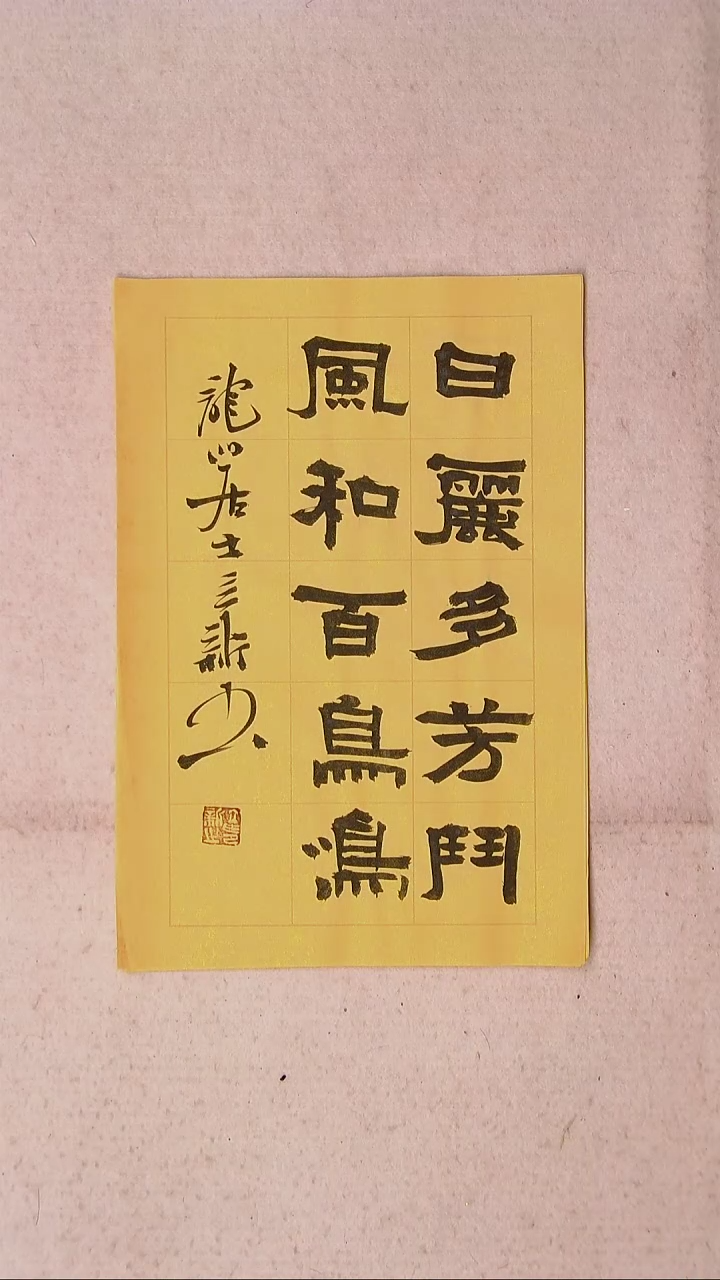 日麗多芳鬥
風和百鳥鳴
龍居士三